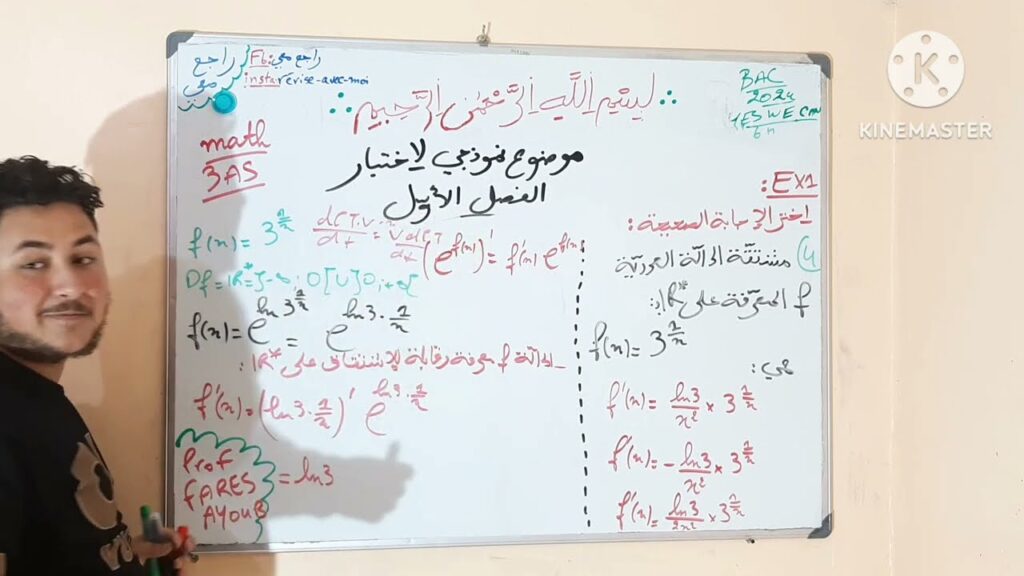 راجع
معي
Fb: راجع معي
insta: revise-avec-moi
بسم الله الرحمن الرحيم
BAC
2024
YES WE CAN
KINEMASTER
math
3AS
موضوع نموذجي لاختبار
الفصل الأول
EX1:
اختر الإجابة الصحيحة:
4) مشتقة الدالة العددية
f المعرفة على R* بـ:
f(x) = 3^{1/x}
هي:
f'(x) = ln3/x² × 3^{1/x}
f'(x) = -ln3/x² × 3^{1/x}
f'(x) = ln3/2x² × 3^{1/x}
f(x) = 3^{1/x}
(e^{f(x)})' = f'(x) e^{f(x)}
Df = R* = ]-∞; 0[ U ]0; +∞[
f(x) = e^{ln 3^{1/x}} = e^{ln3 · 1/x}
- الدالة f معرفة وقابلة للاشتقاق على R*:
f'(x) = (ln3 · 1/x)' e^{ln3 · 1/x}
= ln3
Prof
FARES
AYOUB